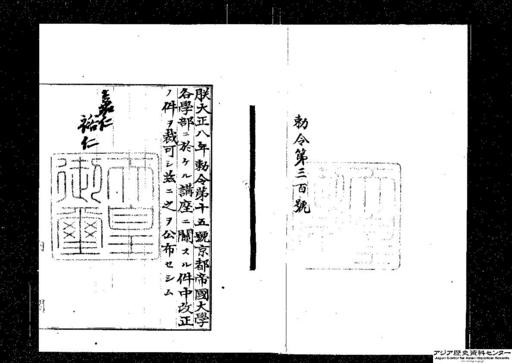 勅令第三百號
朕大正八年勅令第十五號京都帝國大學
各學部ニ於ケル講座ニ關スル件中改正
ノ件ヲ裁可シ茲ニ之ヲ公布セシム
嘉仁
裕仁
天皇
御璽
アジア歴史資料センター
Japan Center for Asian Historical Records